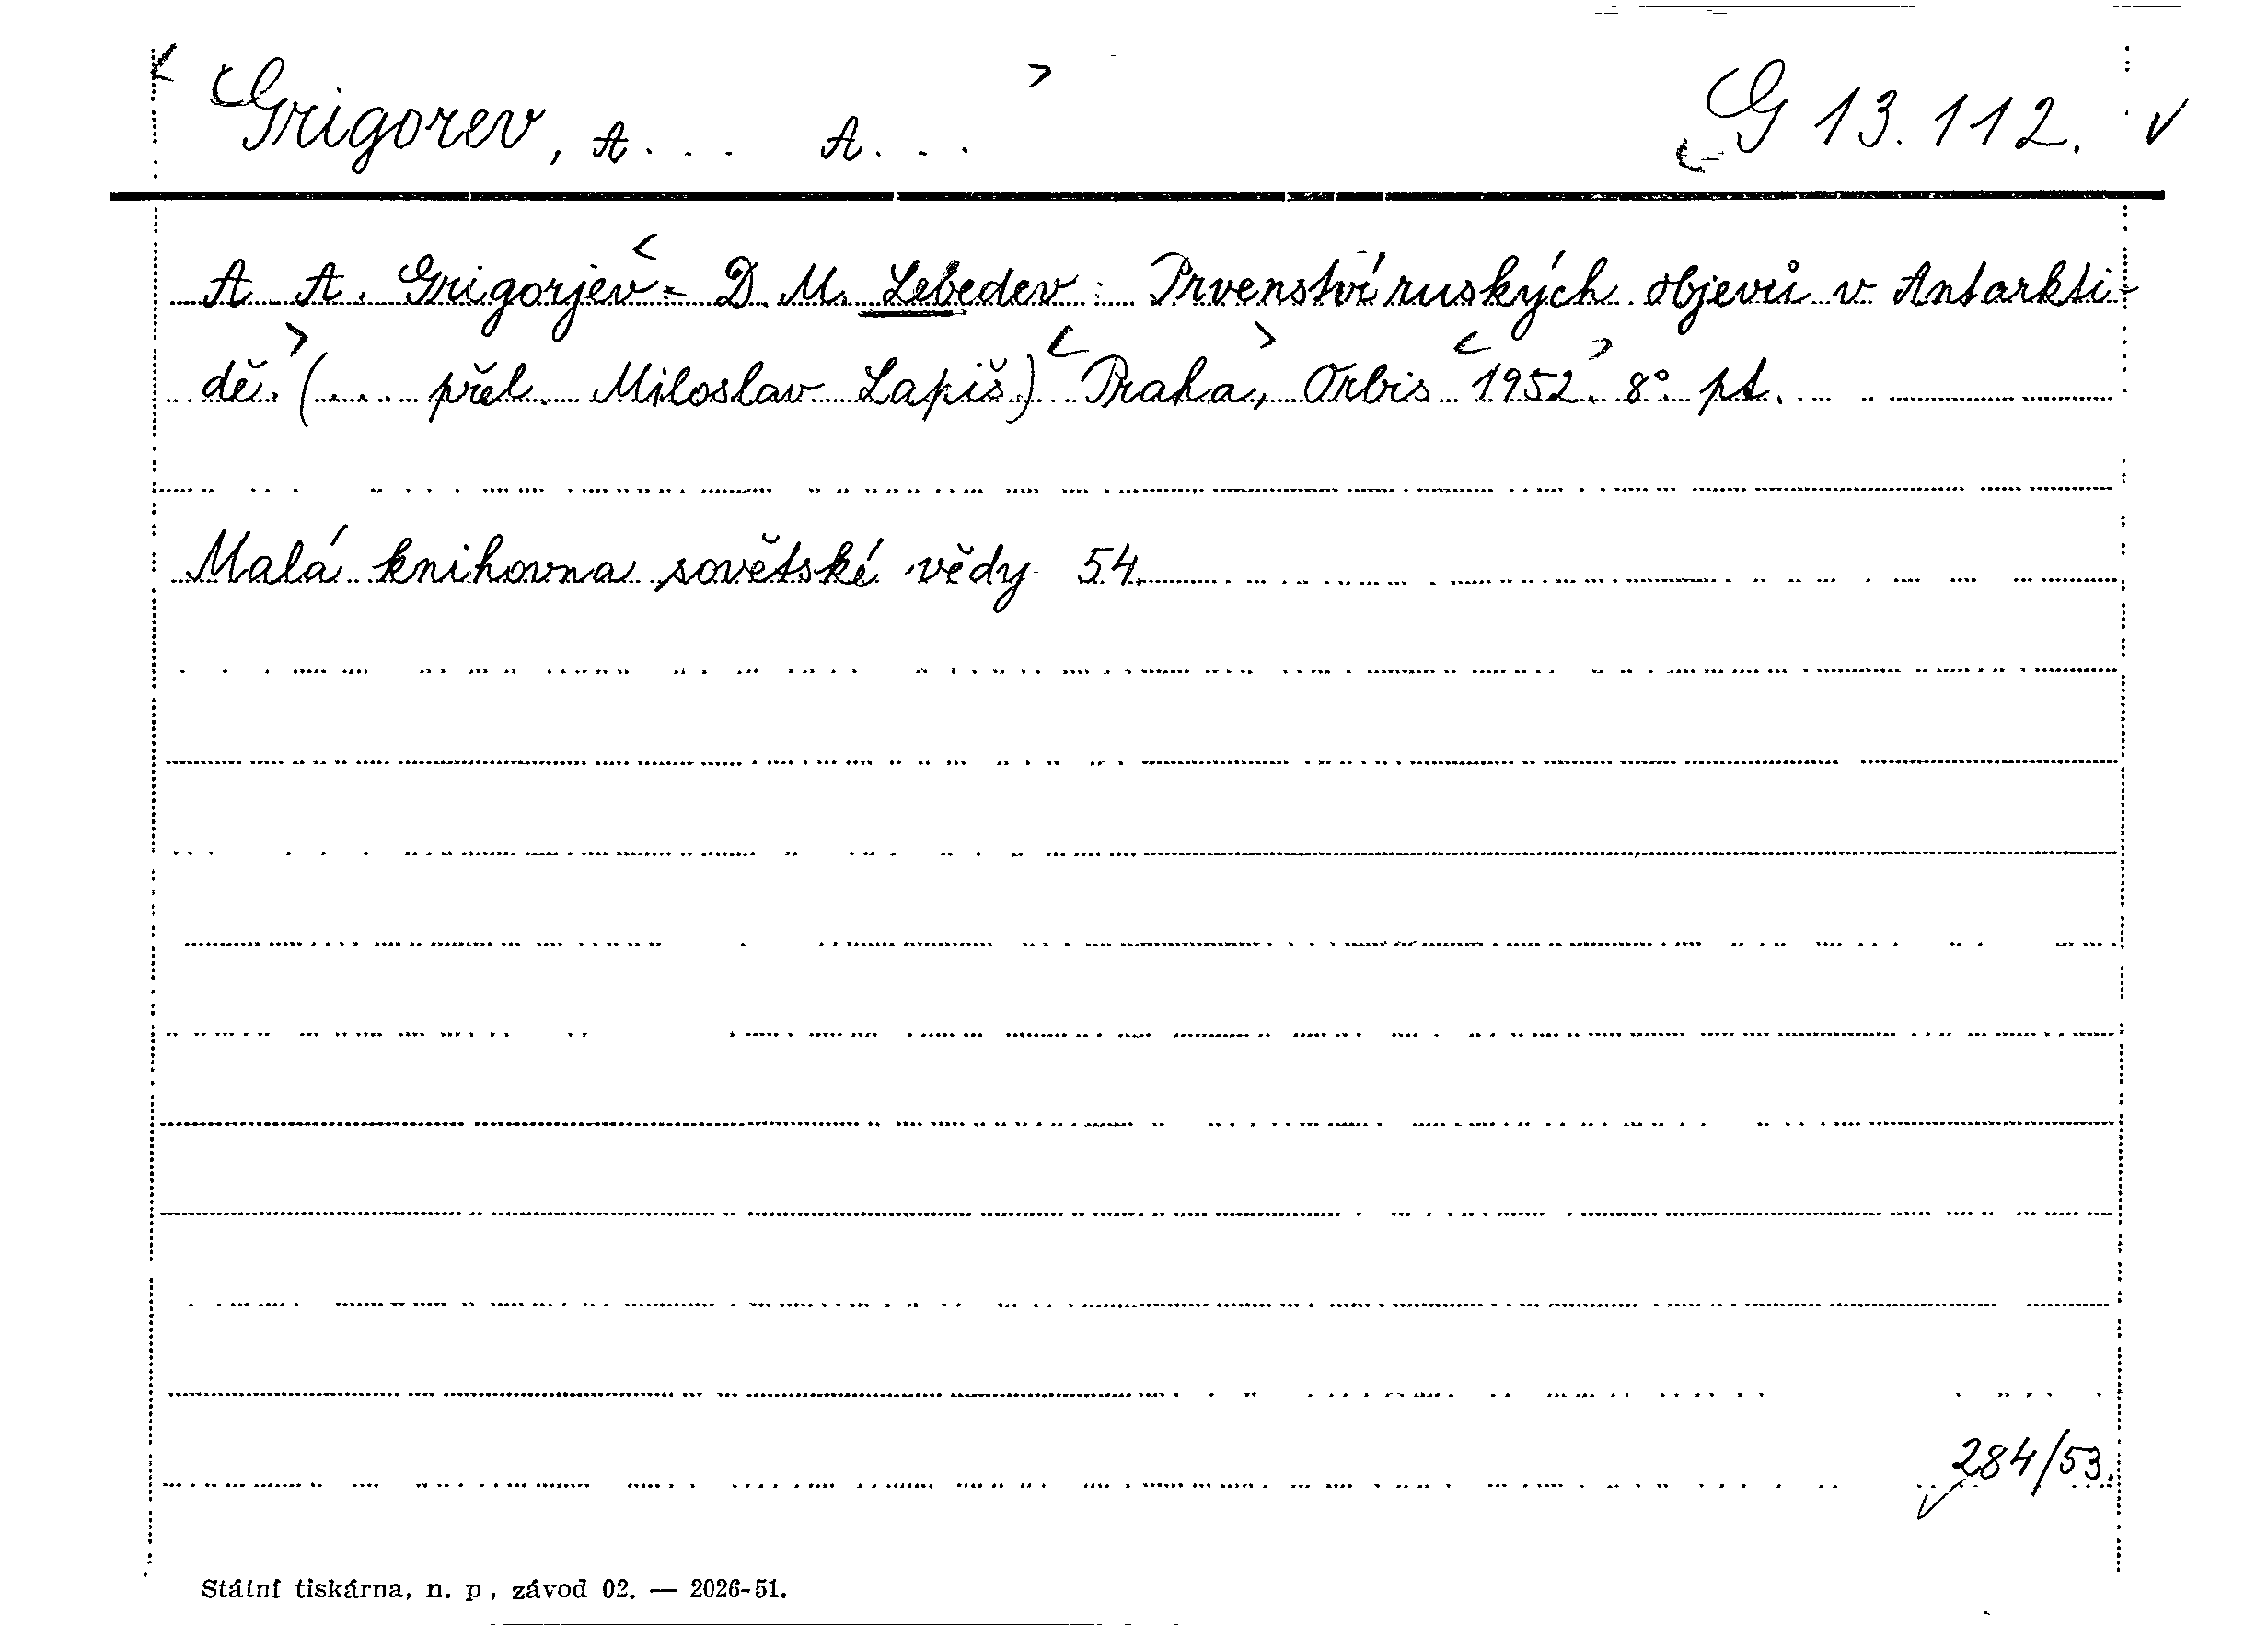 Grigorev, A... A... G 13.112.
A. A. Grigorjev - D. M. Lebedev: Prvenství ruských objevů v Antarkti-
dě. (... přel. Miloslav Lapiš) Praha, Orbis 1952. 8°. pt.
Malá knihovna sovětské vědy 54.
284/53.
Státní tiskárna, n. p., závod 02. — 2026-51.